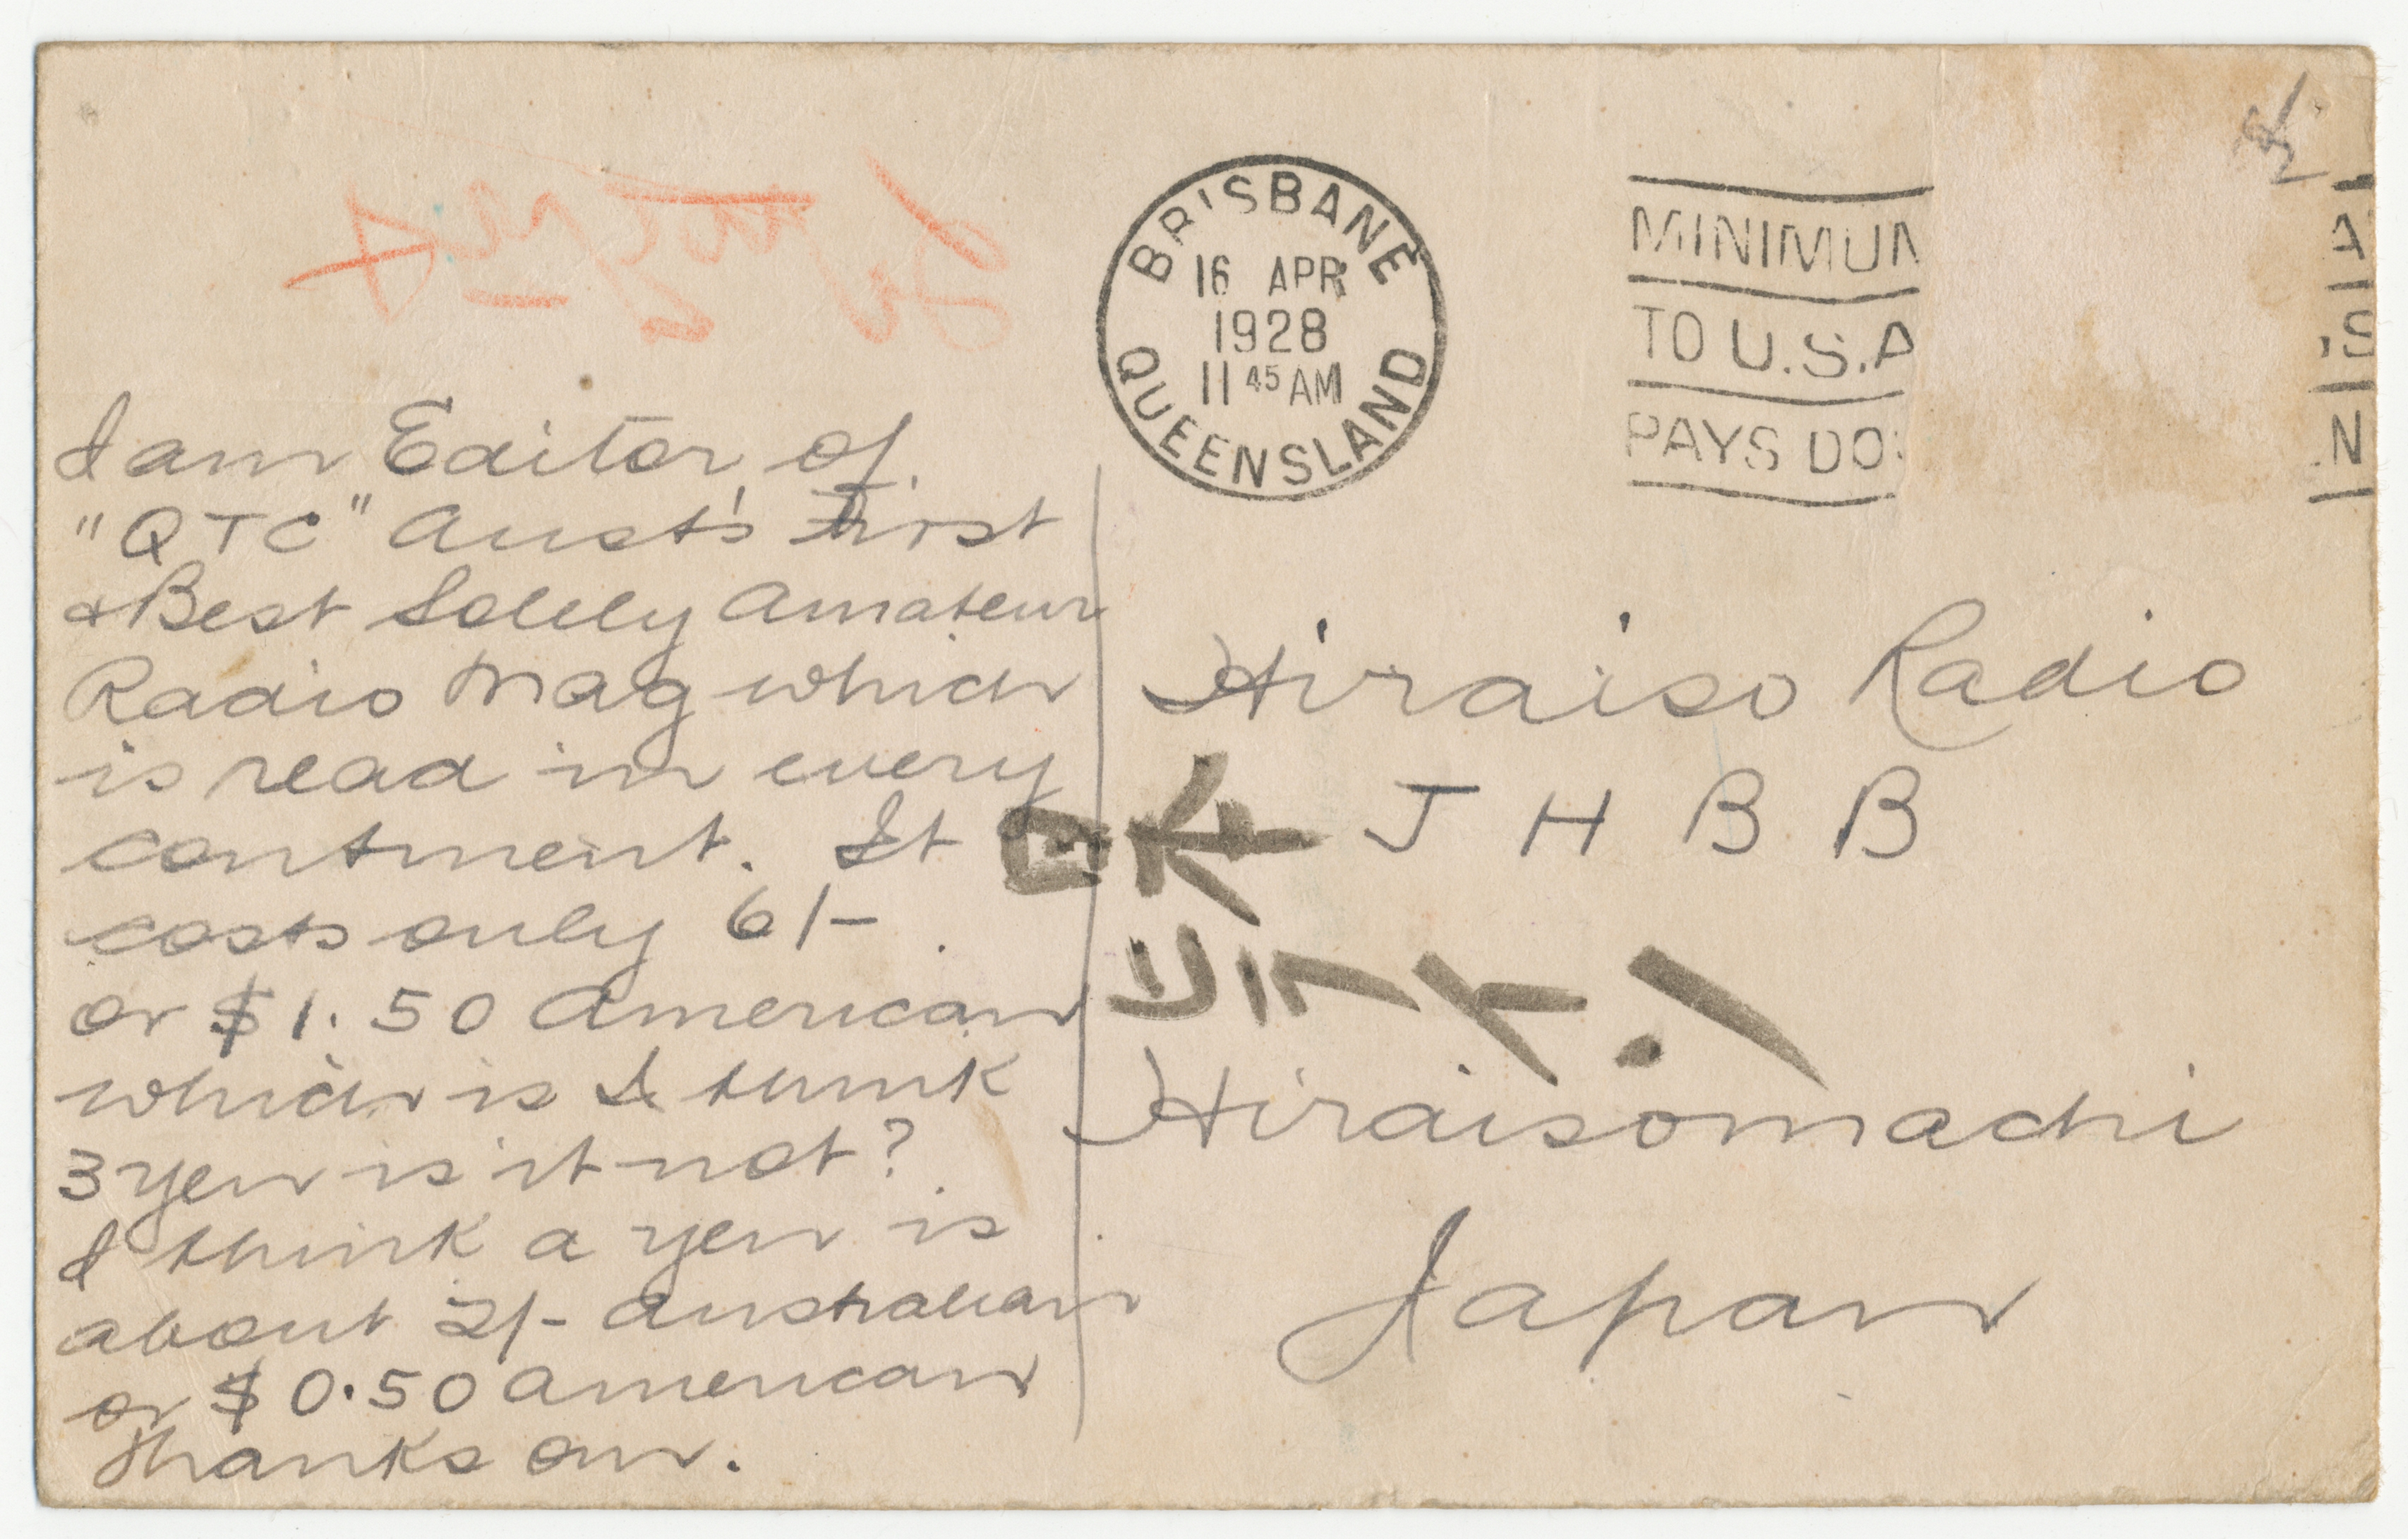 I am Editor of
"QTC" Aust's First
& Best Solely Amateur
Radio Mag which
is read in every
continent. It
costs only 6/-
or $1.50 American
which is I think
3 yen is it not?
I think a yen is
about 2/- Australian
or $0.50 American
Thanks om.
BRISBANE
16 APR
1928
11 45 AM
QUEENSLAND
MINIMUM
TO U.S.A
PAYS DO
Hiraiso Radio
J H B B
Hiraisomachi
Japan